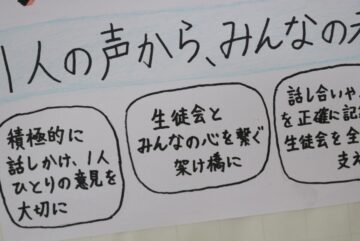 1人の声から、みんなの
積極的に
話しかけ、1人
ひとりの意見を
大切に
生徒会と
みんなの心を繋ぐ
架け橋に
話し合いや
を正確に記
生徒会を全
支